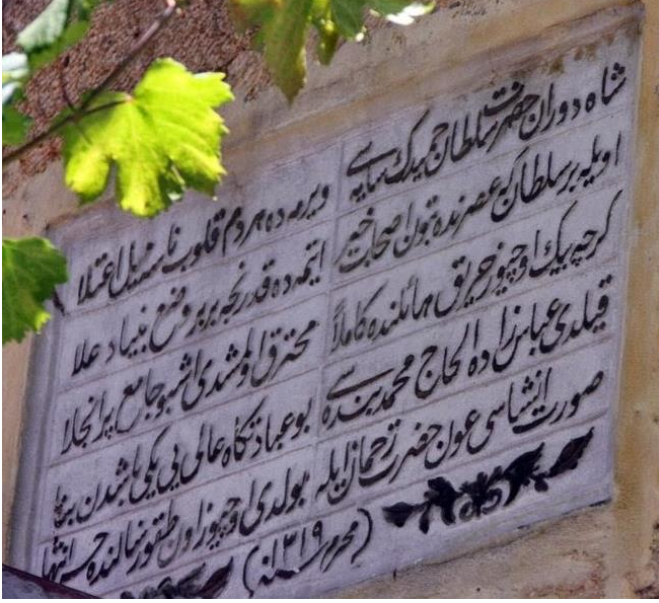 شاه دوران حضرت سلطان حمیدك سایه سی ویرمه ده هر دم قلوب ناسه میل اعتلا
اویله بر سلطان كه عصرنده بتون اصحاب خیر ایتمه ده قدرنجه بربر وضع بنیاد علا
كرچه بیك اوچیوز حریق هائلنده كاملاً محترق اولمشدی اشبو جامع پر انجلا
قیلدی عباس زاده الحاج محمد بنده سی بو عبادتكاه عالی یی یكی باشدن بنا
صورت انشاسی عون حضرت رحمان ایله بولدی اوچیوز اون طقوز سالنده حسن انتها
(محرم سنه ١٣١٩)